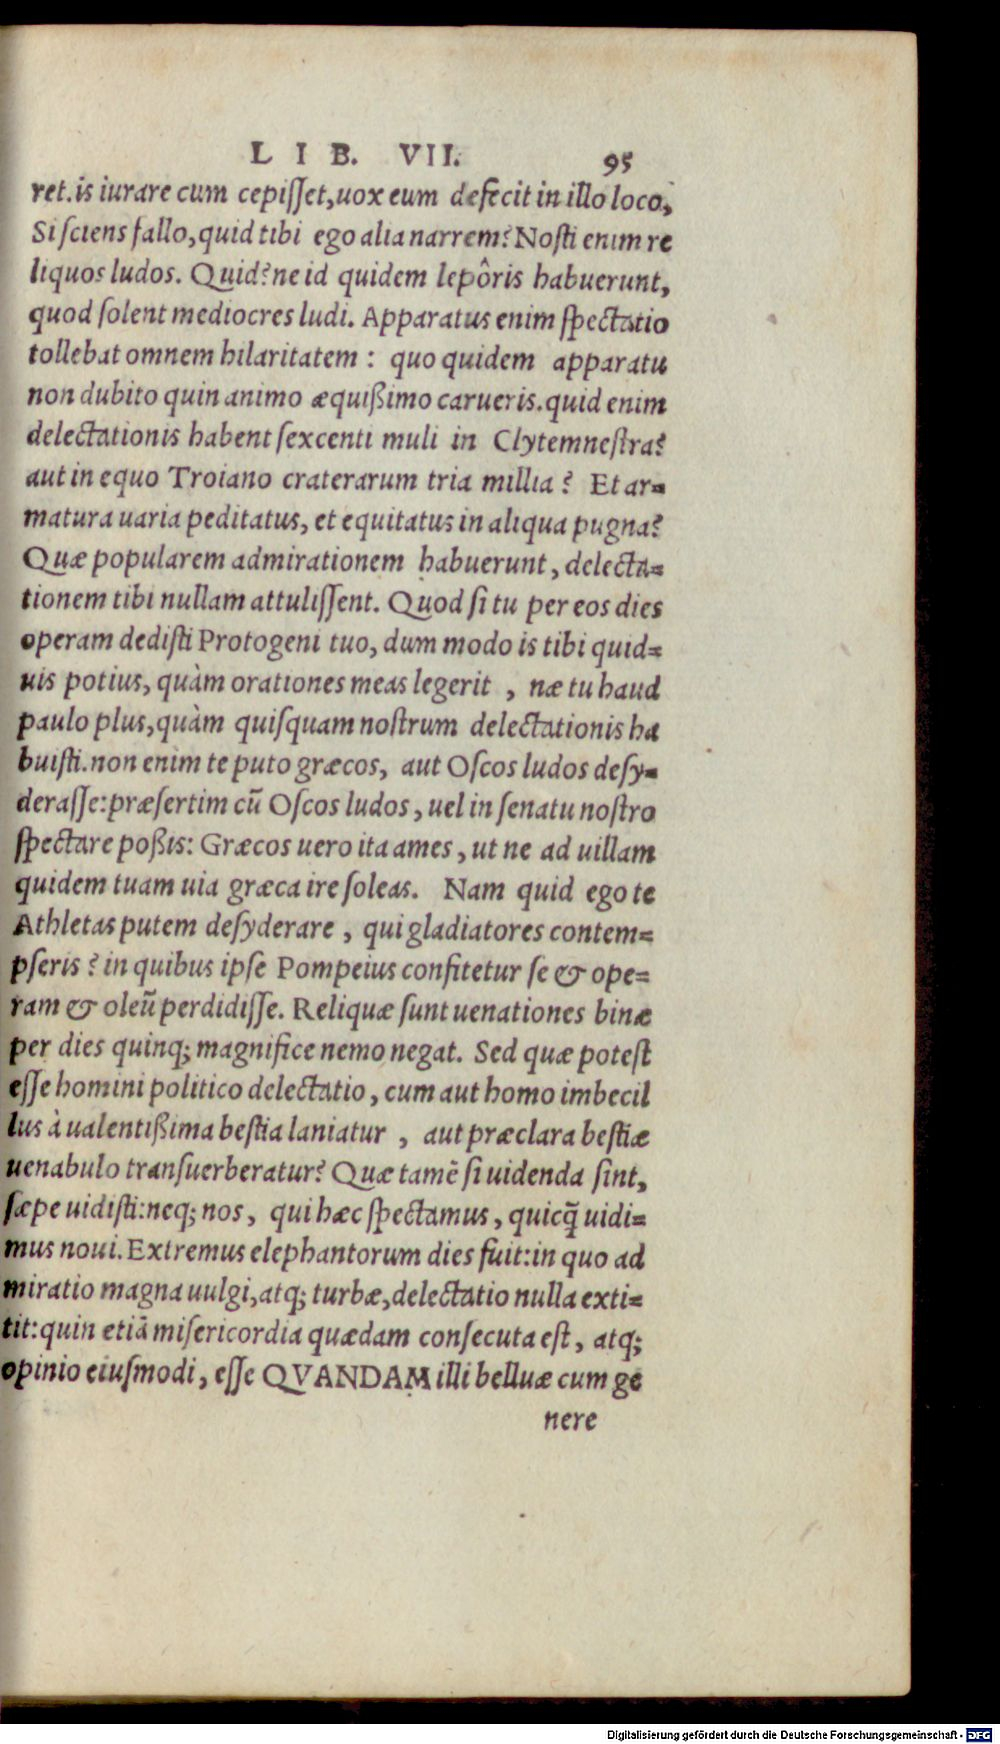 LIB. VII. 95
ret. is iurare cum cepiſſet, uox eum defecit in illo loco,
Si ſciens fallo, quid tibi ego alia narrem? Noſti enim re
liquos ludos. Quid? ne id quidem lepôris habuerunt,
quod ſolent mediocres ludi. Apparatus enim ſpectatio
tollebat omnem hilaritatem : quo quidem apparatu
non dubito quin animo æquißimo carueris. quid enim
delectationis habent ſexcenti muli in Clytemneſtra?
aut in equo Troiano craterarum tria millia ? Et ar=
matura uaria peditatus, et equitatus in aliqua pugna?
Quæ popularem admirationem habuerunt, delecta=
tionem tibi nullam attuliſſent. Quod ſi tu per eos dies
operam dediſti Protogeni tuo, dum modo is tibi quid=
uis potius, quàm orationes meas legerit , næ tu haud
paulo plus, quàm quiſquam noſtrum delectationis ha
buiſti. non enim te puto græcos, aut Oſcos ludos deſy=
deraſſe: præſertim cū Oſcos ludos, uel in ſenatu noſtro
ſpectare poßis: Græcos uero ita ames, ut ne ad uillam
quidem tuam uia græca ire ſoleas. Nam quid ego te
Athletas putem deſyderare , qui gladiatores contem=
pſeris ? in quibus ipſe Pompeius confitetur ſe & ope=
ram & oleū perdidiſſe. Reliquæ ſunt uenationes binæ
per dies quinq; magnifice nemo negat. Sed quæ poteſt
eſſe homini politico delectatio, cum aut homo imbecil
lus à ualentißima beſtia laniatur , aut præclara beſtiæ
uenabulo tranſuerberatur? Quæ tamē ſi uidenda ſint,
ſæpe uidiſti: neq; nos, qui hæc ſpectamus, quicq̃ uidi=
mus noui. Extremus elephantorum dies fuit: in quo ad
miratio magna uulgi, atq; turbæ, delectatio nulla exti=
tit: quin etiā miſericordia quædam conſecuta eſt, atq;
opinio eiuſmodi, eſſe QVANDAM illi belluæ cum ge
nere
Digitalisierung gefördert durch die Deutsche Forschungsgemeinschaft - DFG